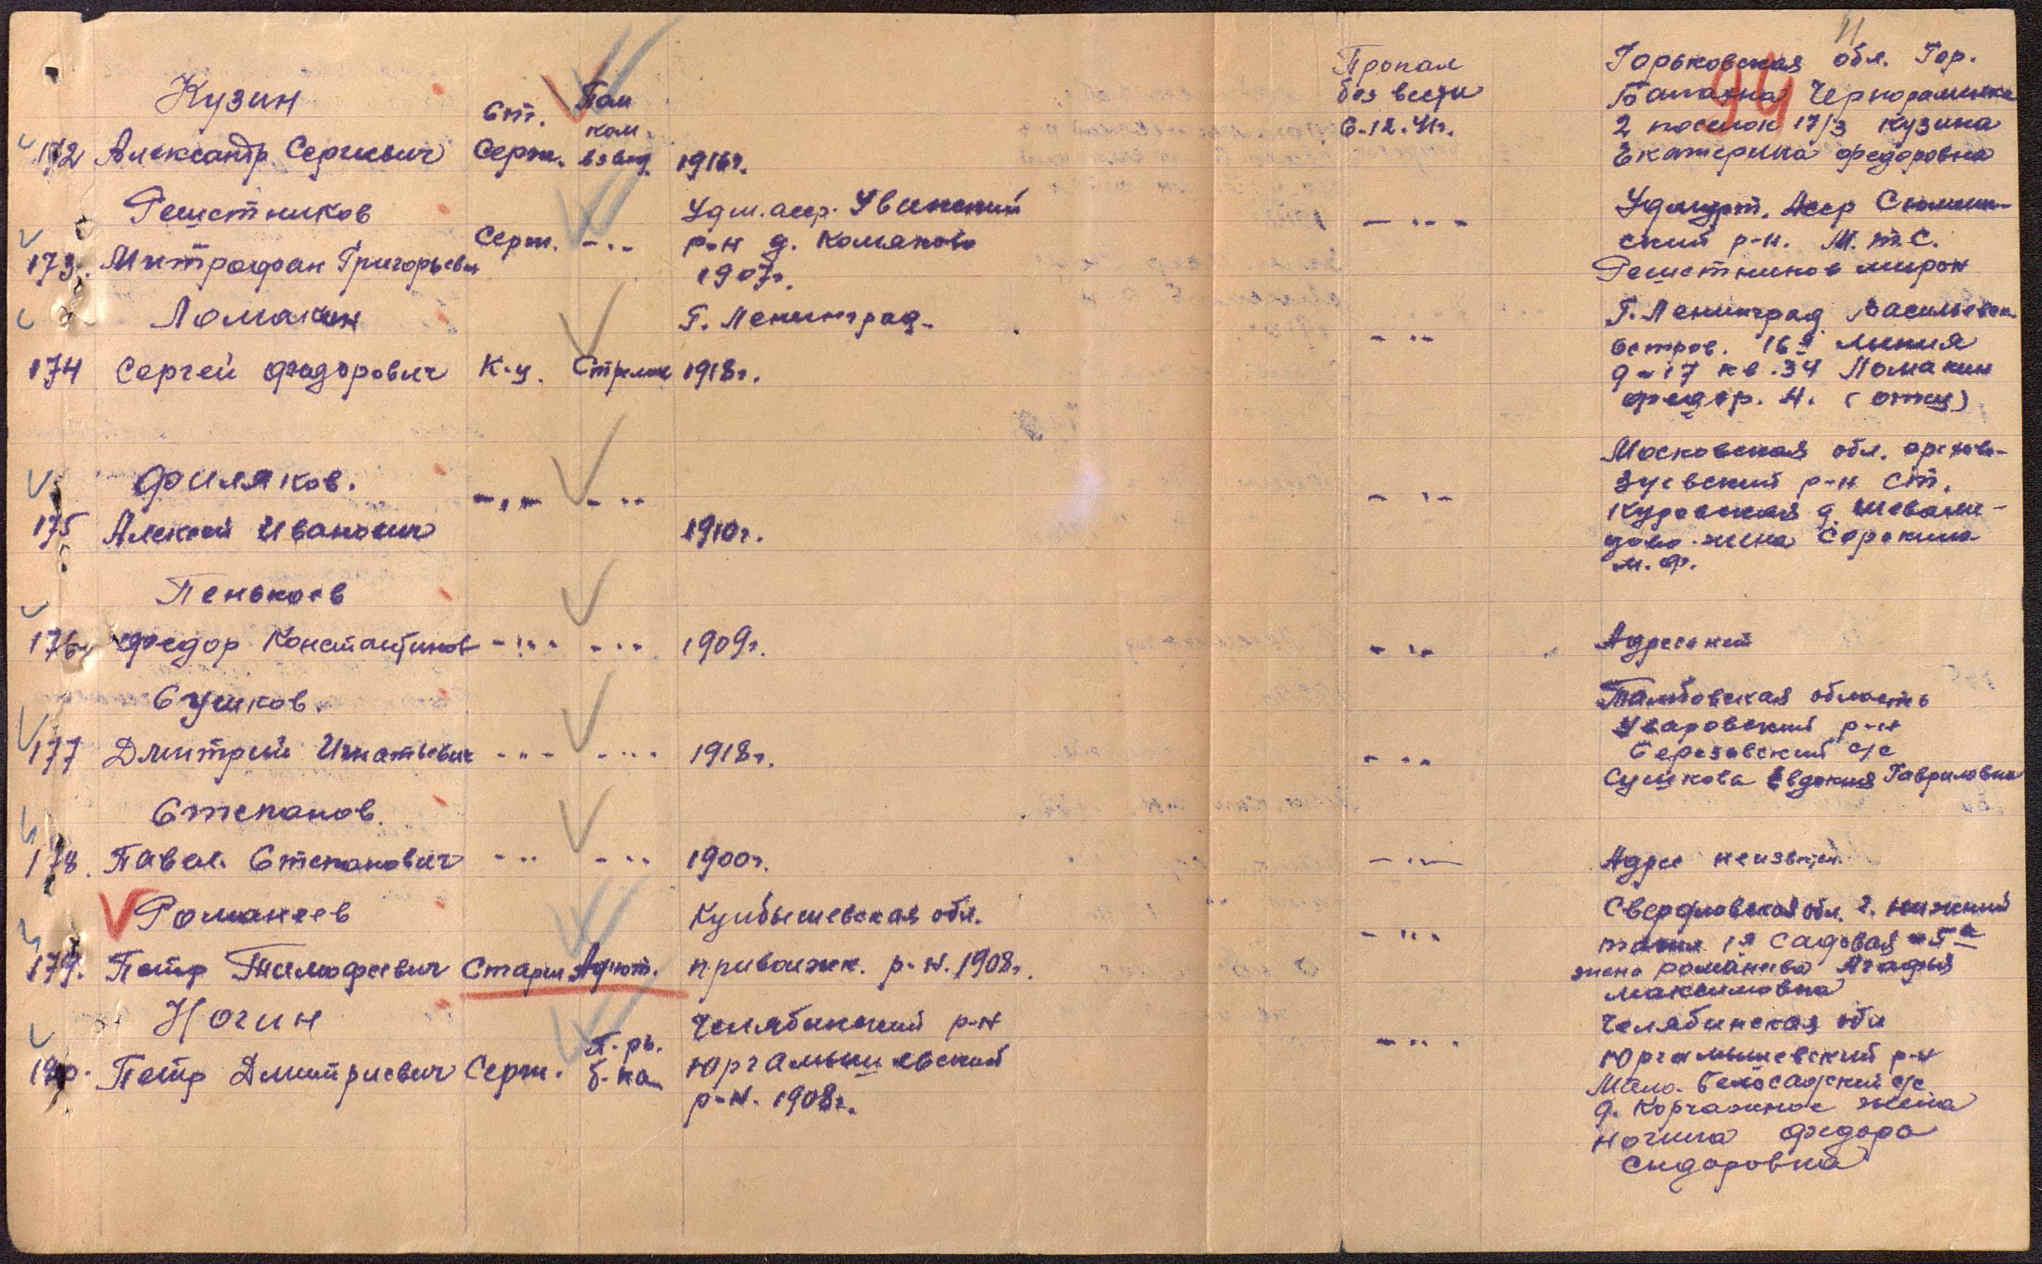 11
94
Кузин
172 Александр Сергиевич
Ст. Серж.
Пом ком взвод.
1916г.
Пропал
без вести
6.12.41г.
Горьковская обл. Гор.
Балахна Чернораменка
2 поселок 17/3 Кузина
Екатерина Федоровна
Решетников
173. Митрофан Григорьевич
Серж.
-..-
Удм. асср. Увинский
р-н д.
1907г.
-"-
Удмурт. Асср Сюмсин-
ский р-н. М.Т.С.
Решетников Мирон
Ломакин
174 Сергей Федорович
К-ц.
Стрелок
Г. Ленинград
1918г.
-"-
Г. Ленинград Васильевск.
Остров. 16я линия
д-17 кв.34 Ломакин
Федор. Н. (отец)
Филяков.
175 Алексей Иванович
-"- -"-
1910г.
-"-
Московская обл. Орехово-
Зуевский р-н ст.
Куровская д.
жена Сорокина
М.Ф.
Пеньков
176 Федор Константинов
-"- -"-
1909г.
-"-
Адреса нет
Сушков.
177 Дмитрий Игнатьевич
-"- -"-
1918г.
-"-
Тамбовская область
Уваровский р-н
Березовский с/с
Сушкова Евдокия Гавриловна
Степанов.
178. Павел. Степанович
-"- -"-
1900г.
-"-
Адрес неизвестен
Романеев
179. Петр Тимофеевич
Старш. Адъют.
Куйбышевская обл.
приволжк. р-н. 1908г.
-"-
Свердловская обл. г. Нижний
Тагил 1я Садовая 5а
жена Романеева Агафья
Максимовна
Ногин
180. Петр Дмитриевич
Серж.
п.рь.
б-на
Челябинский р-н
Юргамышевский
р-н. 1908г.
-"-
Челябинская обл
Юргамышевский р-н
Мало-Белосадский с/с
д. Корчажное жена
Ногина Федора
Сидоровна